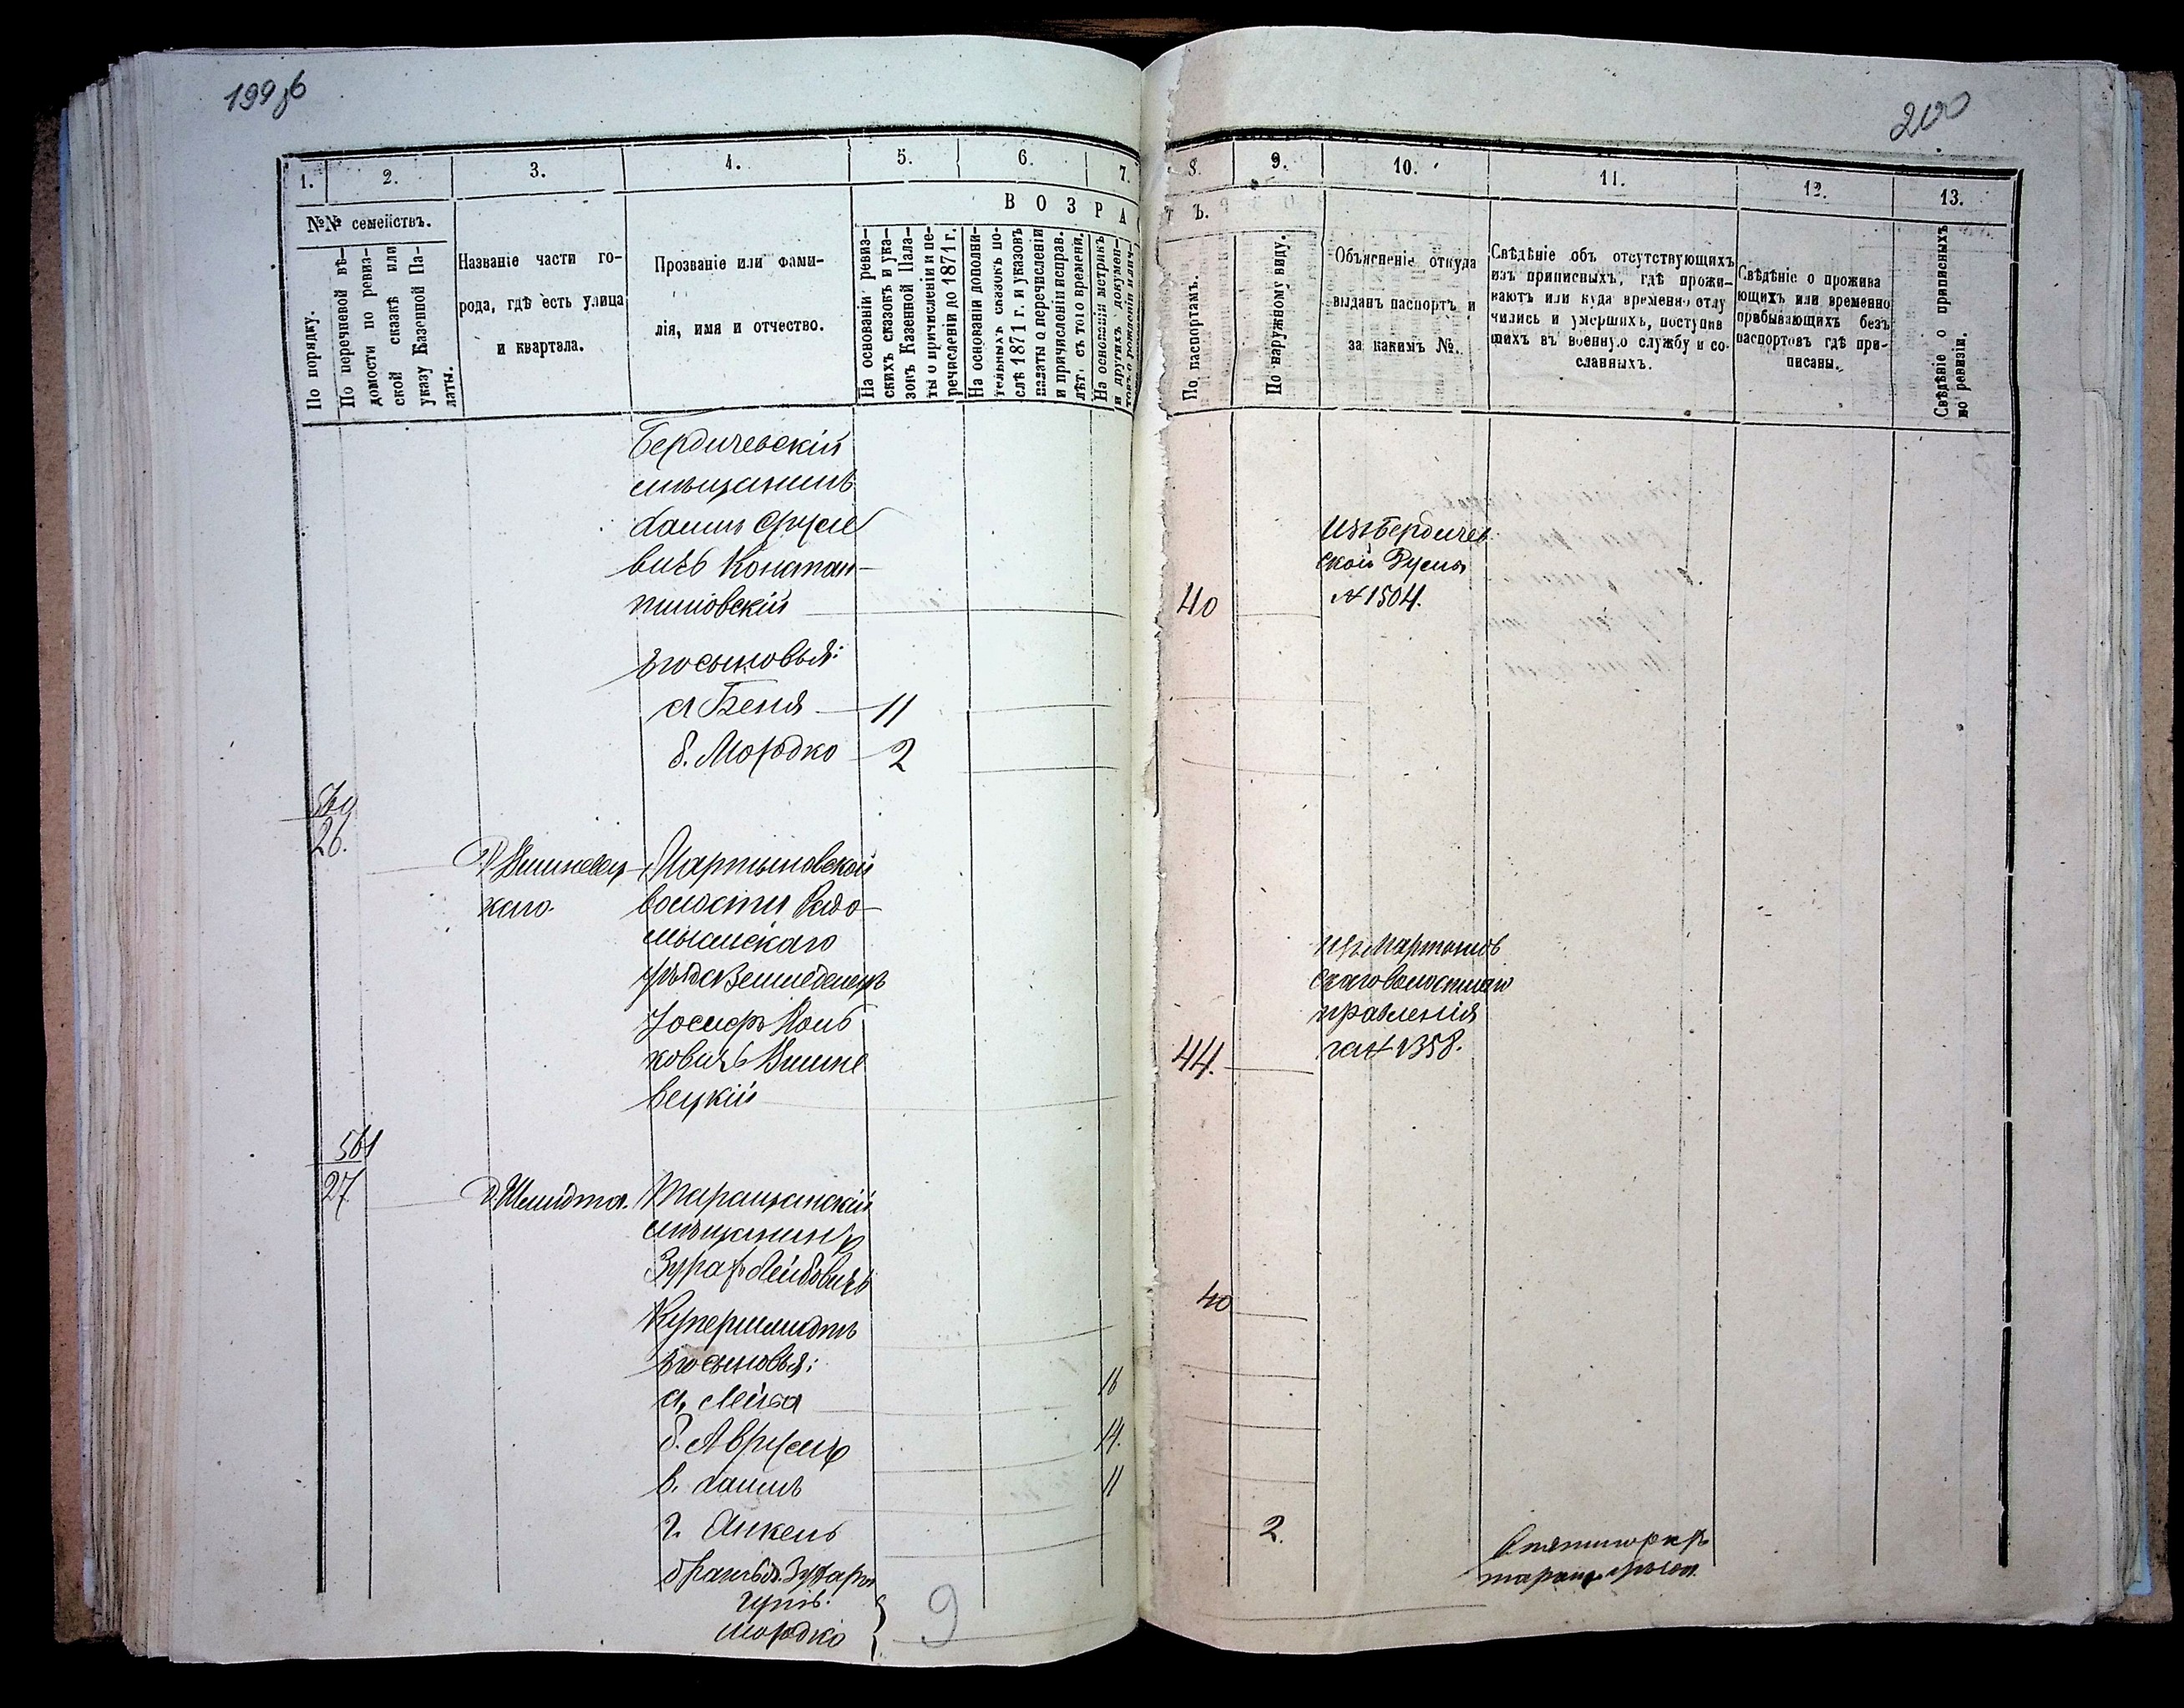 199об
200
1.
2.
3.
4.
5.
6.
7.
8.
9.
10.
11.
12.
13.
№№ семействъ.
По порядку.
По перечневой вѣ-
домости по ревиз-
ской сказкѣ или
указу Казенной Па-
латы.
Названіе части го-
рода, гдѣ есть улица
и квартала.
Прозваніе или фами-
лія, имя и отчество.
ВОЗРА
ТЪ.
На основаніи ревиз-
скихъ сказокъ и ука-
зовъ Казенной Пала-
ты о причисленіи и пе-
речисленіи до 1871 г.
На основаніи дополни-
тельныхъ сказокъ по-
слѣ 1871 г. и указовъ
палаты о перечисленіи
и причисленіи исправ.
лѣт. съ того времени.
На основаніи метрикъ
и другихъ докумен-
По паспортамъ.
По наружному виду.
Объясненіе откуда
выданъ паспортъ и
за какимъ №.
Свѣдѣніе объ отсутствующихъ
изъ приписныхъ, гдѣ прожи-
ваютъ или куда временно отлу
чились и умершихъ, поступив
шихъ въ военную службу и со-
сланныхъ.
Свѣдѣніе о прожива
ющихъ или временно
прабывающихъ безъ
паспортовъ гдѣ при-
писаны.
Свѣдѣніе о приписныхъ
по ревизіи.
Бердичевскій
мѣщанинъ
вичъ Констан-
тиновскій
40
Изъ Бердичев
ской Думы
№ 1504.
Его сыновья:
а Беня 11
б. Мордко 2
26.
Д. Вишневец-
каго
Мартыновской
волости Радо-
мысльскаго
уѣзда Земледѣлецъ
Іосифъ
ковичъ Вишне
вецкій
44.
изъ Мартынов
скаго волостнаго
правленія
за № 1358.
561
27
Д. Шмидта.
Таращанскій
мѣщанинъ
Лейбовичъ
Купершмидтъ
40
Его сыновья:
а, Лейба 16
б. Аврумъ 14.
в. 11
г. Янкель 2.
братья
Мордко
9